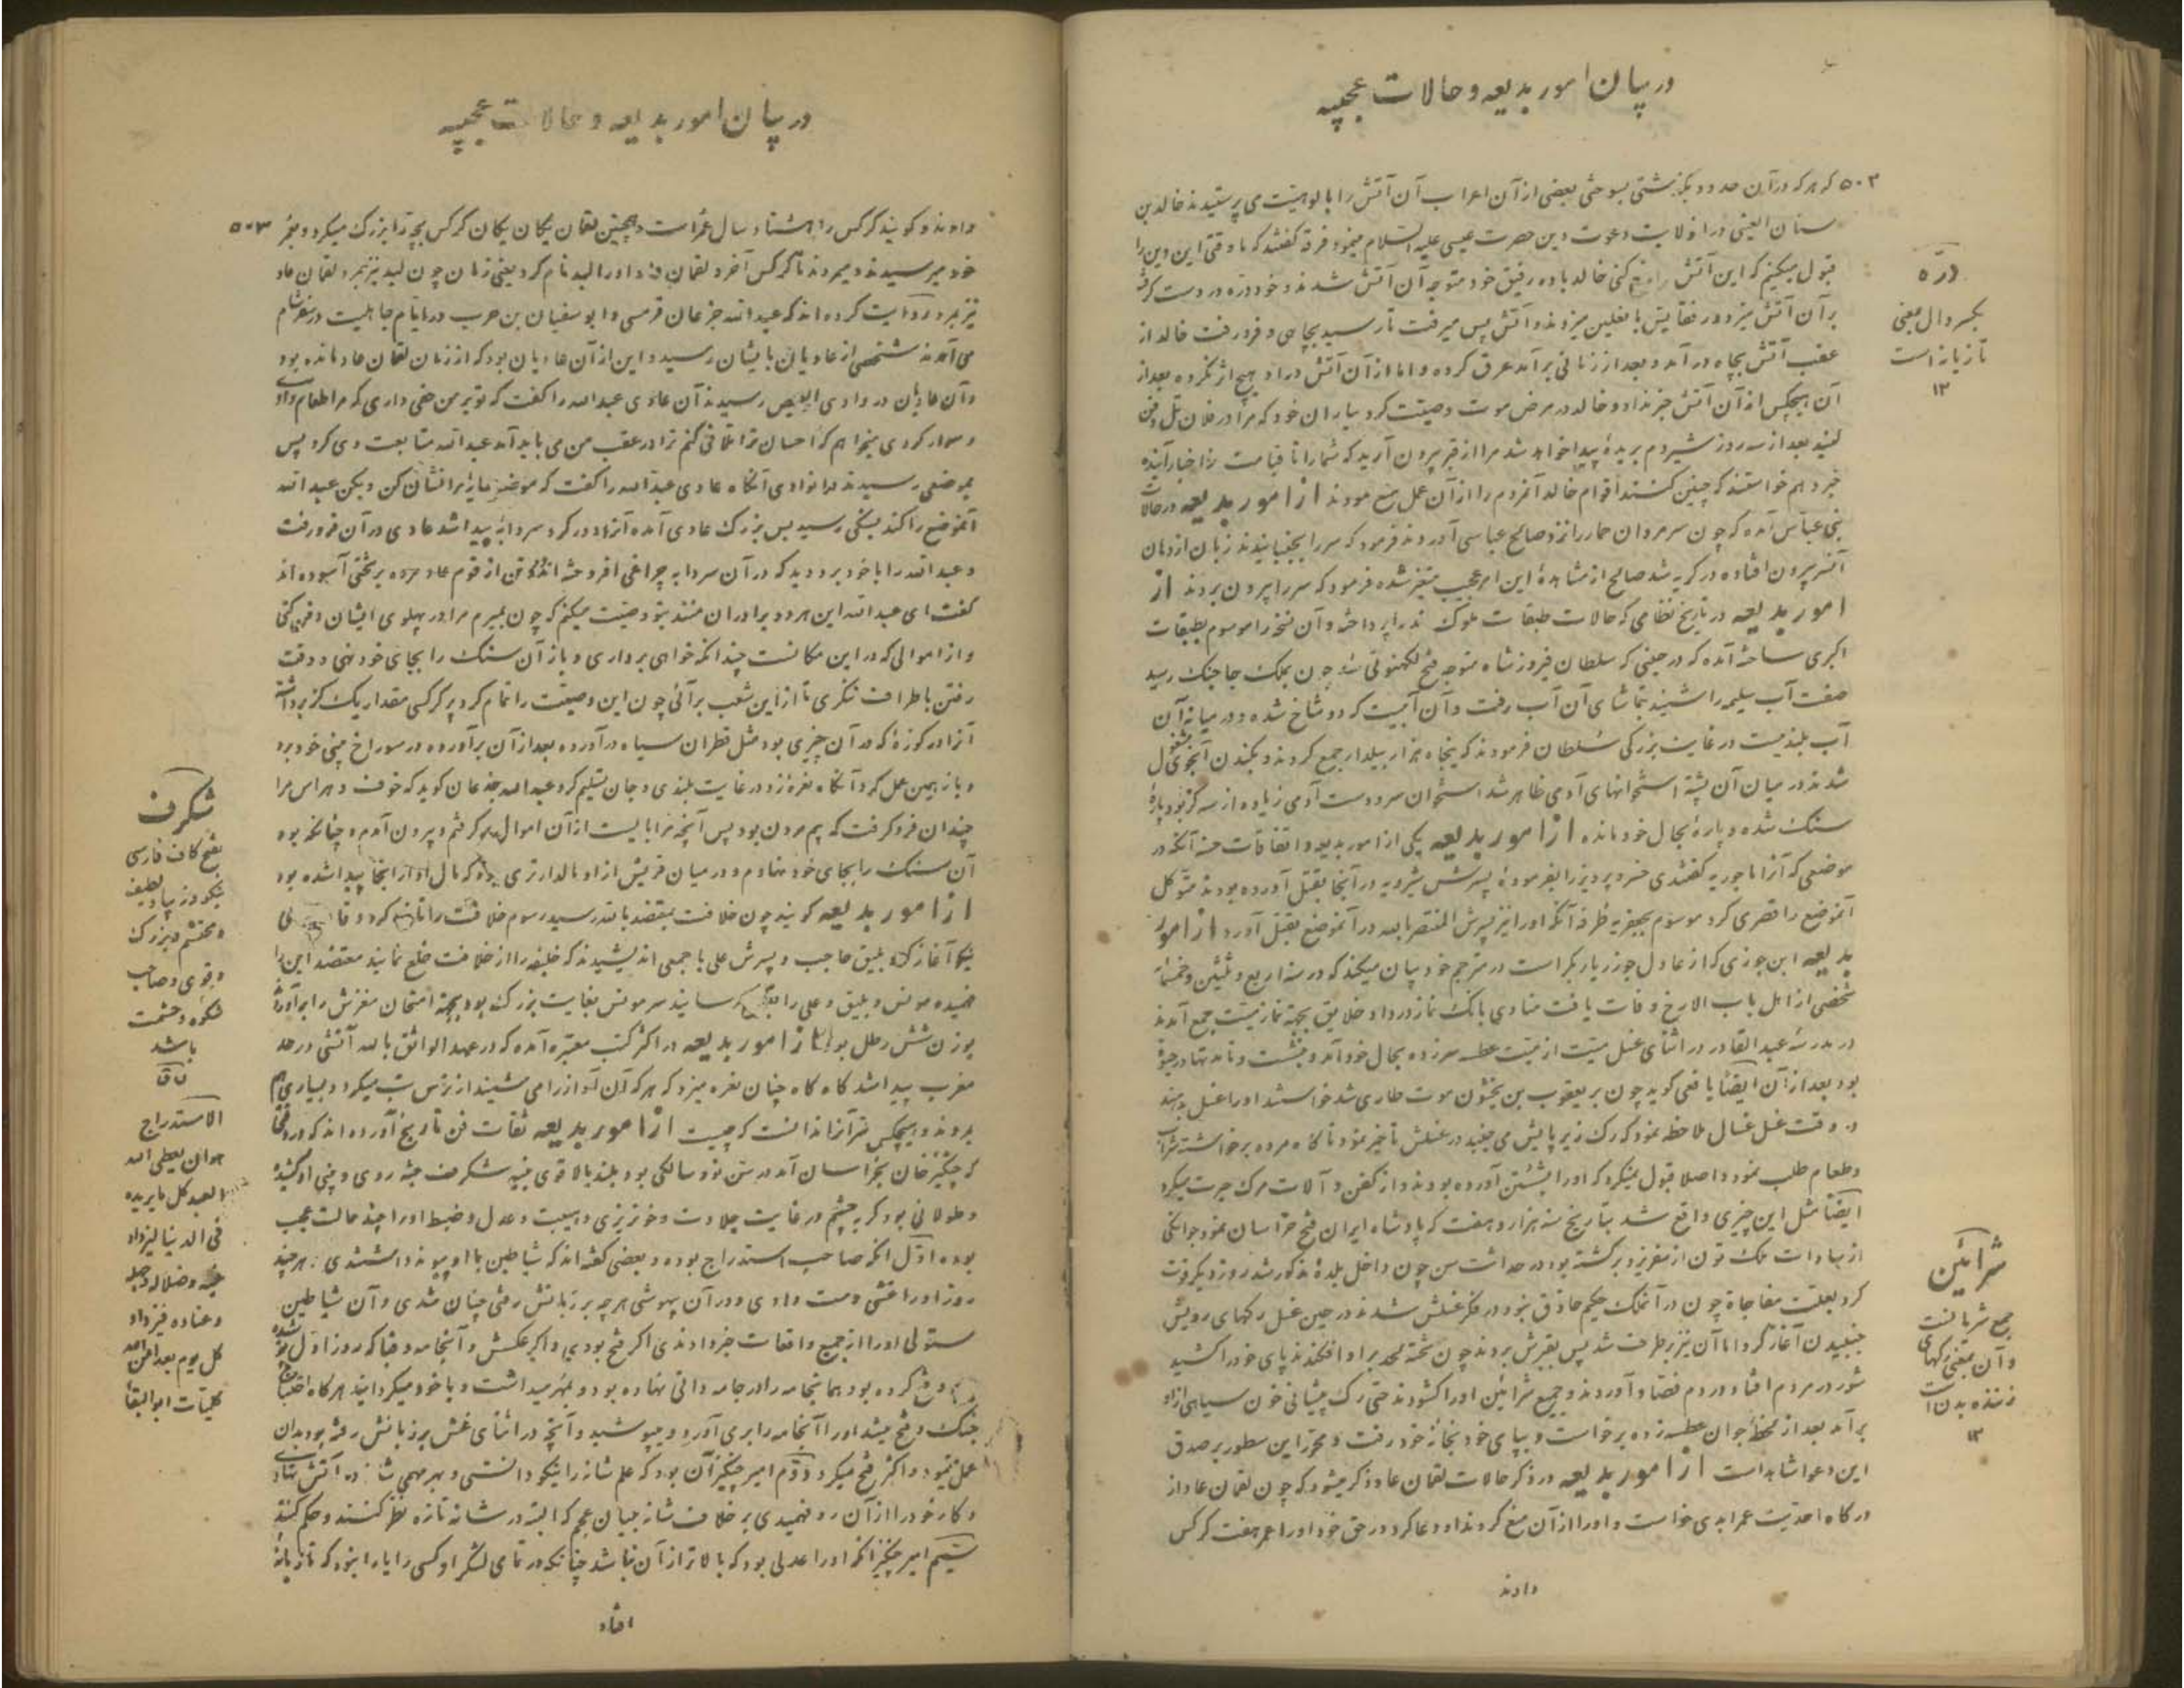 در بیان امور بدیعه و حالات عجیبه
۵۰۲ که هر که در آن حدود بگذشتی بسوختی بعضی از آن اعراب آن آتش را بالوهیت می پرستیدند خالد بن
سنان العبسی در آن ولایت دعوت دین حضرت عیسی علیه السلام مینمود فرقه گفتند که ما وقتی این دین را
قبول میکنیم که این آتش را دفع کنی خالد با ده رفیق خود متوجه آن آتش شدند و خود دره در دست گرفته
بر آن آتش میزد و رفقایش با نعلین میزدند و آتش پس میرفت تا رسید بچاهی و فرو رفت خالد از
عقب آتش بچاه در آمد و بعد از زمانی برآمد عرق کرده و اما از آن آتش در او هیچ اثر نکرده بعد از
آن هیچکس از آن آتش خبر نداد و خالد در مرض موت وصیت کرد بیاران خود که مرا در فلان تل دفن
کنید بعد از سه روز شیر دم بریدهٔ پیدا خواهد شد مرا از قبر بیرون آرید که شما را تا قیامت از اخبار آینده
خبر دهم خواستند که چنین کنند اقوام خالد آنمردم را از آن عمل منع نمودند از امور بدیعه در حالات
بنی عباس آمده که چون سر مروان حمار را نزد صالح عباسی آوردند فرمود که سر را بجنبانیدند زبان از دهان
آنسر بیرون افتاده در گربه شد صالح از مشاهدهٔ این امر عجیب متغیر شده فرمود که سر را بیرون بردند از
امور بدیعه در تاریخ نظامی که حالات طبقات ملوک پرداخته و آن نسخه را موسوم بطبقات
اکبری ساخته آمده که در حینی که سلطان فیروز شاه متوجه فتح لکهنوتی شد چون بملک جاجنگر رسید
صفت آب سلیمه را شنید بتماشای آن آب رفت و آن آبیست که دو شاخ شده و در میانه آن
آب بلندیست در غایت بزرگی سلطان فرمودند که پنجاه هزار بیلدار جمع کردند و بکندن آنجوی مشغول
شدند در میان آن پشته استخوانهای آدمی ظاهر شد استخوان سر و دست آدمی زیاده از سه گز بود پارهٔ
سنگ شده و پارهٔ بحال خود مانده از امور بدیعه یکی از امور بدیعه و اتفاقات حسنه آنکه در
موضعی که آنرا ماحوریه گفتندی خسرو پرویز را بفرمودهٔ پسرش شیرویه در آنجا بقتل آورده بودند متوکل
آنموضع را قصری کرد موسوم بجعفریه طرفه آنکه او را نیز پسرش المنتصر بالله در آنموضع بقتل آورد از امور
بدیعه ابن جوزی که از عادل جوز دیار بکر است در مترجم خود بیان میکند که در سنه اربع و ثلثین و خمسمأئة
شخصی از اهل باب الازج وفات یافت منادی بانگ نماز در داد خلایق بجهة نماز میت جمع آمدند
در مدرسه عبدالقادر در اثنای غسل میت از میت عطسه سر زده بحال خود آمد و بنشست و
بود بعد از آن ایضاً یافعی گوید چون بر یعقوب بن موت طاری شد خواستند او را غسل بدهند
در وقت غسل غسال ملاحظه نمود که رک زیر پایش می جنبد در غسلش تأخیر نمود ناگاه مرده برخاسته شراب
و طعام طلب نمود و اصلا قبول نمیکرد که او را بشستن آورده بودند و از کفن و آلات مرک حیرت میکرد
ایضاً مثل این چیزی واقع شد بتاریخ سنه هزار و هفت که پادشاه ایران فتح خراسان نمود جوانکی
از سادات ملک تون از سفر یزد برگشته بود در حداثت سن چون داخل بلدهٔ مذکور شد روز دیگر فوت
کرد بعلت مفاجاة چون در آنملک حکیم حاذق نبود در فکر غسلش شدند در حین غسل رکهای رویش
جنبیدن آغاز کرد اما آن نیز برطرف شد پس بقبرش بردند چون تخته لحد بر او افکندند پای خود را کشید
شور در مردم افتاد مردم فصاد آوردند و جمیع شرائین او را گشودند حتی رک پیشانی خون سیاهی از او
برآمد بعد از لحظهٔ جوان عطسه زده برخاست و بپای خود بخانه خود رفت و محرر این سطور بر صدق
این دعوا شاهد است از امور بدیعه در ذکر حالات لقمان عاد ذکر میشود که چون لقمان عاد از
درگاه احدیت عمر ابدی خواست و او را از آن منع کردند او دعا کرد در حق خود او را عمر هفت کرکس
دادند
درّه
بکسر دال بمعنی
تازیانه است
۱۲
شرائین
جمع شریانست
و آن بمعنی رکهای
زننده بدن است
۱۲
در بیان امور بدیعه و حالات عجیبه
دادند و گویند کرکس را هشتاد سال عمر است و همچنین لقمان یکان یکان کرکس بچه را بزرک میکرد و بعمر ۵۰۳
خود میرسیدند و میمردند تا کرکس آخر و لقمان او را لبد نام کرد یعنی زمان چون لبد نیز بمرد لقمان عاد
نیز بمرد روایت کرده اند که عبدالله جذعان قرشی و ابوسفیان بن حرب در ایام جاهلیت در سفر شام
می آمدند شخصی از عادیان بایشان رسید و این از آن عادیان بود که از زمان لقمان عاد مانده بود
و آن عادیان در وادی رسیدند آن عادی عبدالله را گفت که تو بر من حقی داری که مرا طعام دادی
و سوار کردی میخواهم که احسان ترا تلافی کنم ترا در عقب من می باید آمد عبدالله متابعت وی کرد پس
بموضعی رسیدند در آنوادی آنگاه عادی عبدالله را گفت که موضع را نشان کن و بکن عبدالله
آنموضع را کند بسنگی رسید بس بزرک عادی آمده آنرا دور کرد سردابهٔ پیدا شد عادی در آن فرو رفت
و عبدالله را با خود برد دید که در آن سردابه چراغی افروخته اند و دو تن از قوم عاد مرده بر تختی آسوده اند
گفت ای عبدالله این هر دو برادران منند بتو وصیت میکنم که چون بمیرم مرا در پهلوی ایشان دفن کنی
و از اموالی که در این مکانست چندانکه خواهی برداری و باز آن سنگ را بجای خود نهی و وقت
رفتن باطراف ننگری تا از این شعب برآئی چون این وصیت را تمام کرد پر کرکسی مقدار یک گز برداشته
آنرا در کوزهٔ که در آن چیزی بود مثل قطران سیاه در آورده بعد از آن برآورده در سوراخ بینی خود برد
و باز همین عمل کرد آنگاه نعرهٔ زد در غایت بلندی و جان تسلیم کرد عبدالله جذعان گوید که خوف و هراس مرا
چندان فرو گرفت که بیم مردن بود پس آنچه مرا بایست از آن اموال برگرفتم و بیرون آمدم و چنانکه بود
آن سنگ را بجای خود نهادم و در میان قریش از او مالدارتری نبود که مال او از آنجا پیدا شده بود
از امور بدیعه گویند چون خلافت بمعتضد بالله رسید رسوم خلافت را تازه کرد و
نیکو آغاز کرد بلیق حاجب و پسرش علی با جمعی اندیشیدند که خلیفه را از خلافت خلع نمایند معتضد این را
فهمیده مونس و بلیق و علی را بقتل رسانید سر مونس بغایت بزرک بود بجهة امتحان مغزش را برآورده
بوزن شش رطل بود از امور بدیعه در اکثر کتب معتبره آمده که در عهد الواثق بالله آتشی در حد
مغرب پیدا شد گاه گاه چنان نعره میزد که هر که آن آواز را می شنید از ترس تب میکرد و بسیاری هم
مردند و هیچکس سر آنرا ندانست که چیست از امور بدیعه ثقات فن تاریخ آورده اند که در وقتی
که چنگیز خان بخراسان آمد در سن نود سالگی بود بلند بالا قوی بنیه شگرف جثه روی و بینی او کشیده
و طولانی بود گربه چشم در غایت جلادت و خونریزی و هیبت و عدل و ضبط او را چند حالت عجب
بوده اول آنکه صاحب استدراج بوده و بعضی گفته اند که شیاطین با او پیوند داشتندی هر چند
روز او را غشی دست دادی و در آن بیهوشی هر چه بر زبانش رفتی چنان شدی و آن شیاطین
مستولی شده او را از جمیع واقعات خبر دادندی اگر فتح بودی و اگر عکسش و آنجامه و قبا که روز اول
کرده بود همانجامه را در جامه دانی نهاده بود و بمهر میداشت و با خود میگردانید هر گاه احتیاج
جنک و فتح میشد او را آنجامه را بری آورد و میپوشید و آنچه در اثنای غش بر زبانش رفته بود بدان
عمل مینمود و اکثر فتح میکرد دوّم امیر چنگیز آن بود که علم شانه را نیکو دانستی و بهر مهمی شانه در آتش نهادی
و کار خود را از آن رو فهمیدی بر خلاف شانه بینان عجم که البته در شانه تازه نظر کنند و حکم کنند
سیّم امیر چنگیز آنکه او را عدلی بود که بالاتر از آن نباشد چنانکه در تمامی لشکر او کسی را یارا نبود که تازیانهٔ
افتاد
شگرف
بفتح کاف فارسی
نیکو و زیبا و لطیف
و محتشم و بزرک
و قوی و صاحب
شکوه و حشمت
باشد
ق
الاستدراج
هو ان یعطی الله
العبد کل ما یریده
فی الدنیا لیزداد
غیه و ضلاله و جهله
و عناده فیزداد
کل یوم بعداً من الله
کلیات ابوالبقا